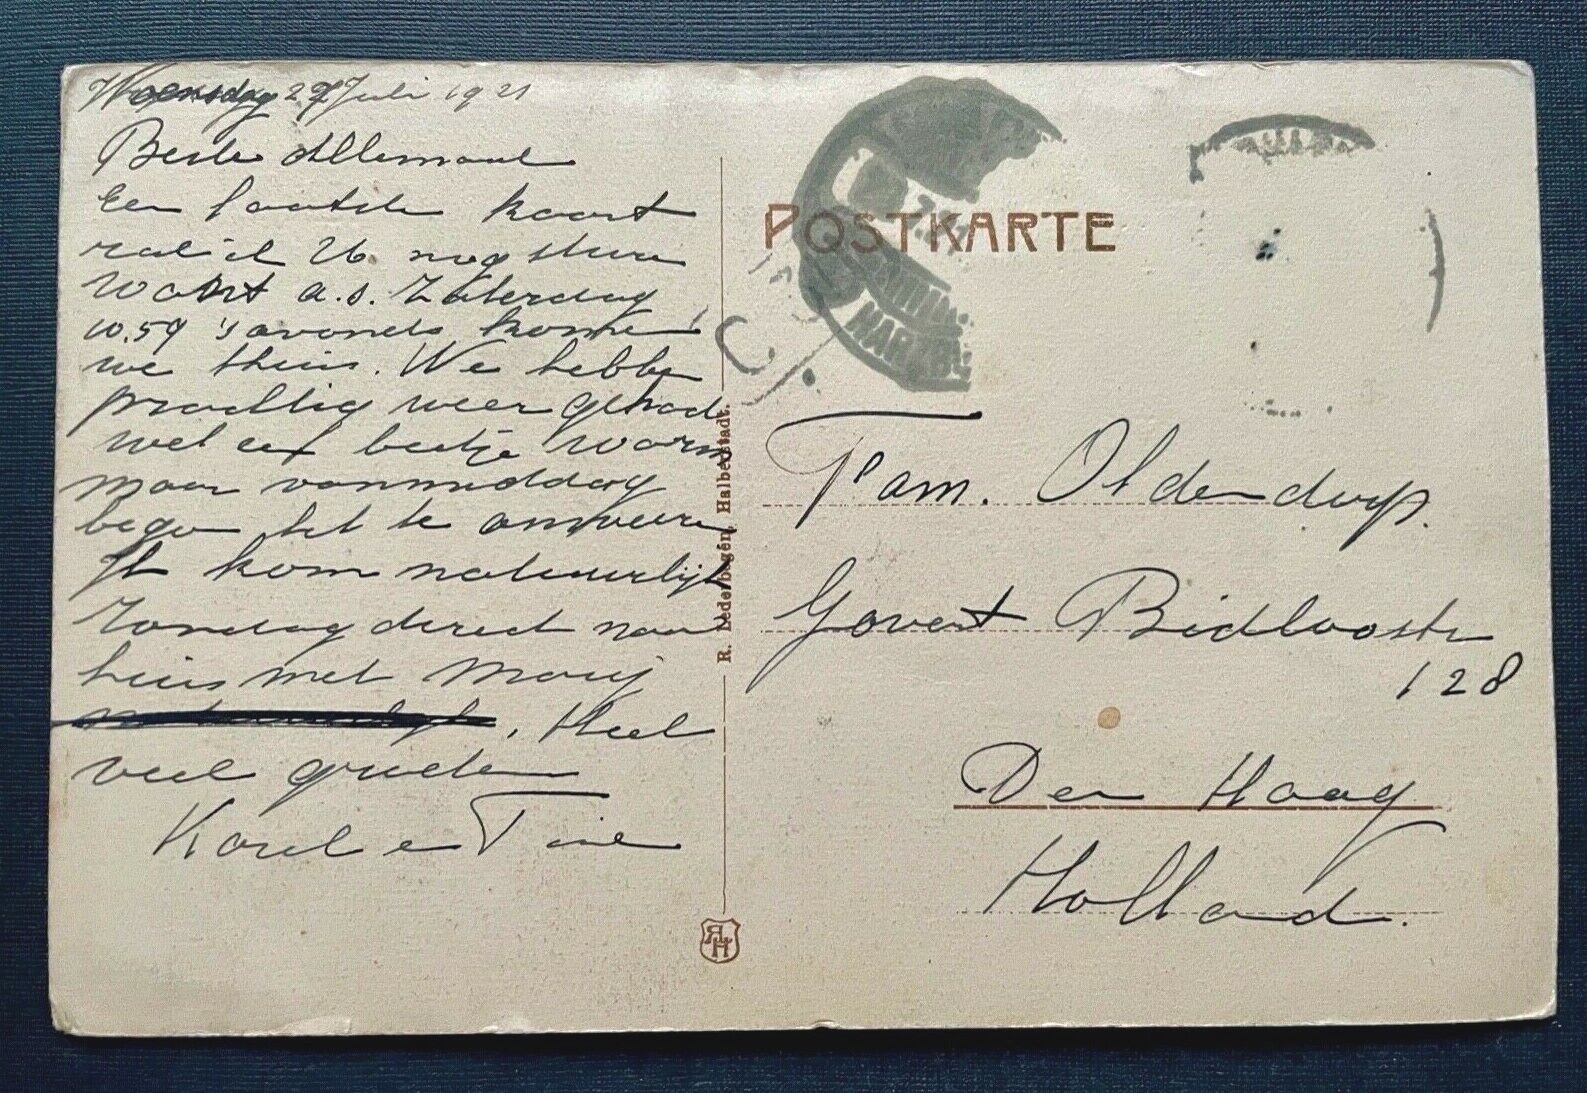 Woensdag 27 Juli 1921
Beste Allemaal
Een laatste kaart
zal ik U nog sturen
want a.s. Zaterdag
10.59 's avonds komen
we thuis. We hebben
prachtig weer gehad
wel een beetje warm
maar vanmiddag
begon het te onweeren
Ik kom natuurlijk
Zondag direct naar
huis met Marij
, Heel
veel groeten
Karel en Tine
POSTKARTE
R. Lederbogen, Halberstadt.
RLH
Fam. Oldendorp.
Govert Bidloostr
128
Den Haag
Holland.